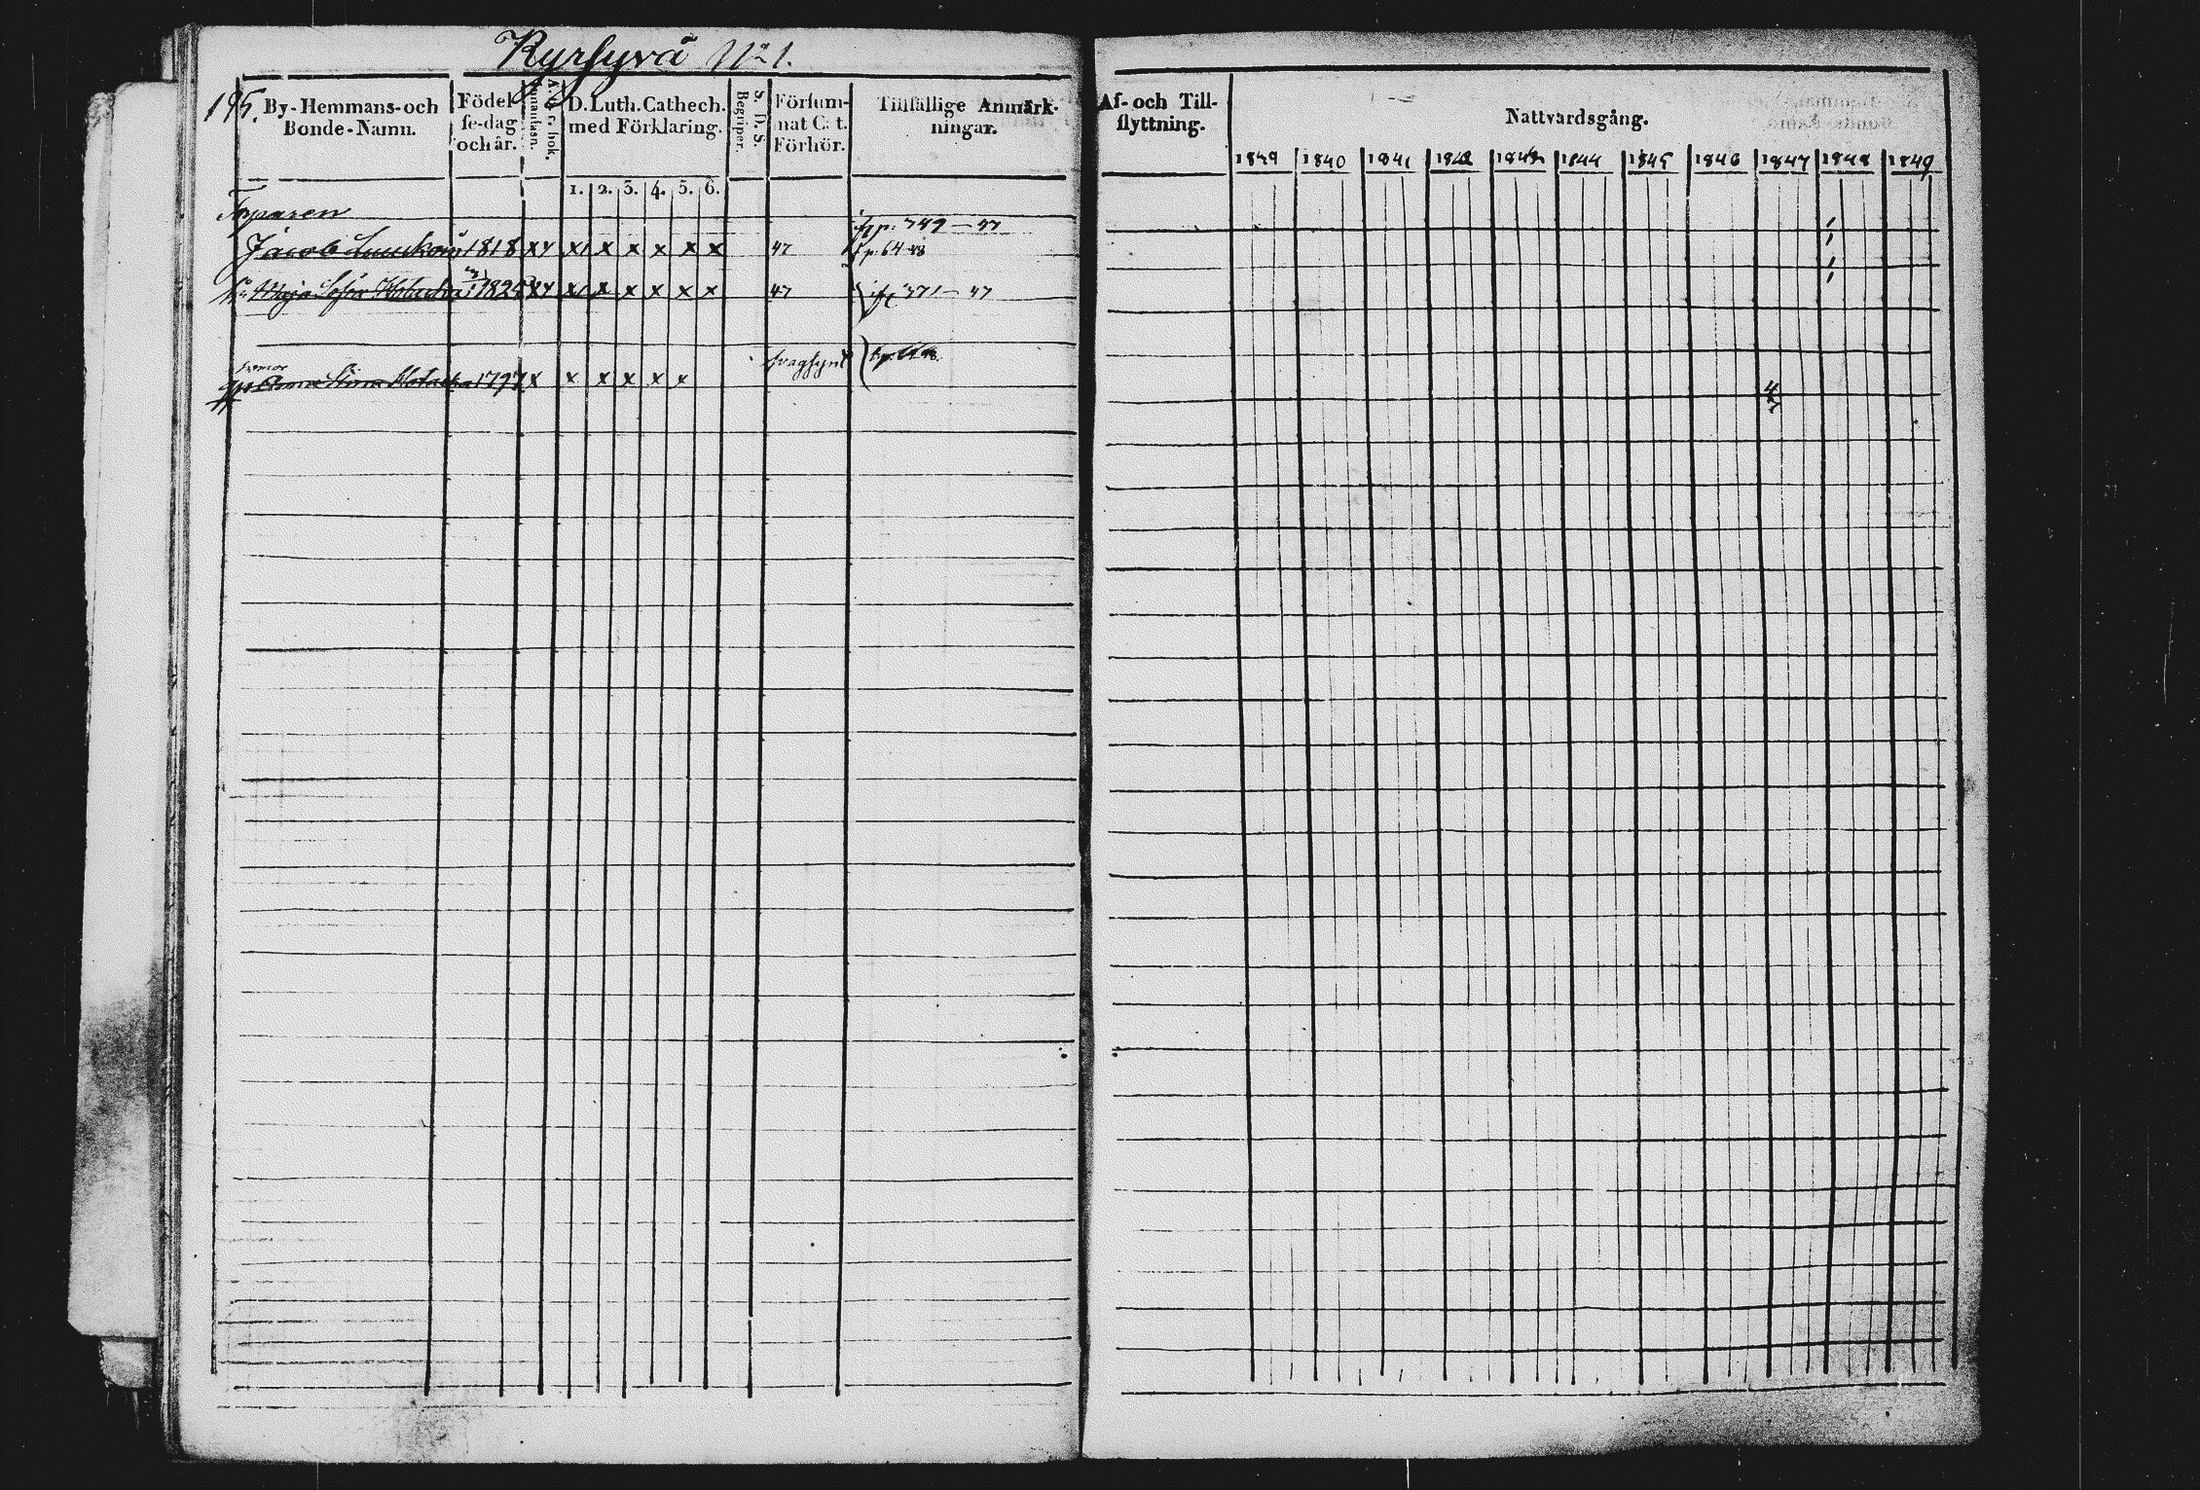 Kyrsyvä No 1.
195.
By-Hemmans-och Bonde-Namn.
Födel- se-dag och år.
Innanläsn.
A. b. c. bok.
D. Luth. Cathech. med Förklaring.
1. 2. 3. 4. 5. 6.
S. D. S.
Begriper.
Försum- nat Cat. Förhör.
Tillfällige Anmärk- ningar.
Af- och Till- flyttning.
Nattvardsgång.
1839 1840 1841 1842 1843 1844 1845 1846 1847 1848 1849
Torparen
fr p. 749 - 47
Jacob 1818 x x x x x x x x 47 p. 64 48
Maja Sofia 1825 x x x x x x x x 47 371 - 47
svagsynt
Anna 1797 x x x x x x
4
7